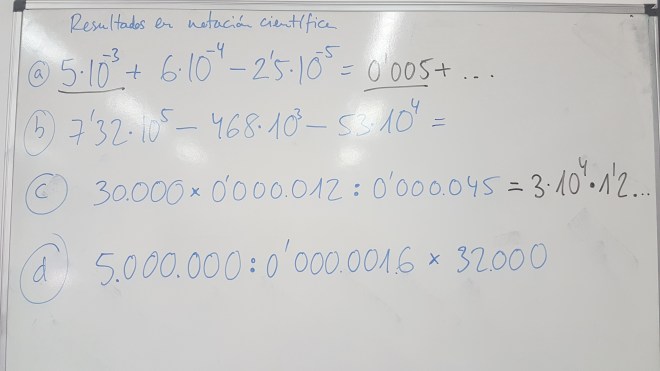 Resultados en notación científica
a 5·10⁻³ + 6·10⁻⁴ − 2'5·10⁻⁵ = 0'005 + ...
b 7'32·10⁵ − 468·10³ − 53·10⁴ =
c 30.000 × 0'000.012 : 0'000.045 = 3·10⁴·1'2...
d 5.000.000 : 0'000.0016 × 32.000